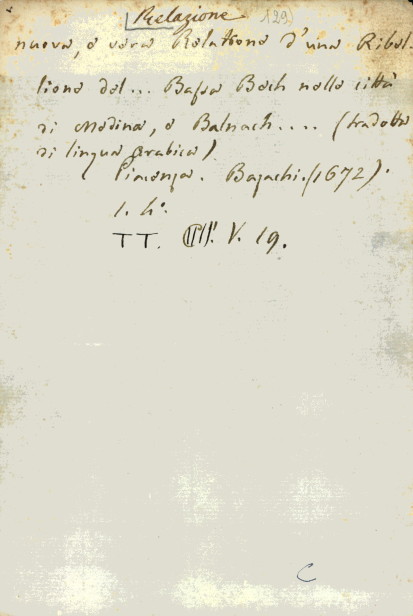 Relazione 129)
nuova, e vera Relatione d'una Ribel-
lione del... Bassa Bech nelle città
di Medina, e Balnach.... (tradotta
di lingua Arabica)
Piacenza. Bazachi. (1672).
1. 4°.
TT. V. 19.
C